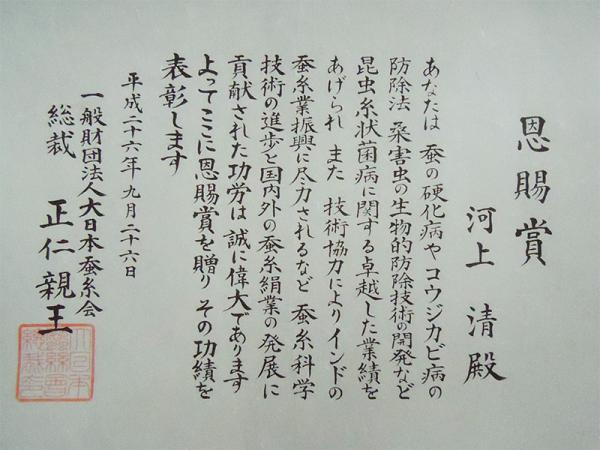 恩賜賞
河上 清 殿
あなたは 蚕の硬化病やコウジカビ病の
防除法 桑害虫の生物的防除技術の開発など
昆虫糸状菌病に関する卓越した業績を
あげられ また 技術協力によりインドの
蚕糸業振興に尽力されるなど 蚕糸科学
技術の進歩と国内外の蚕糸絹業の発展に
貢献された功労は 誠に偉大であります
よってここに恩賜賞を贈り その功績を
表彰します
平成二十六年九月二十六日
一般財団法人大日本蚕糸会
総裁 正仁親王